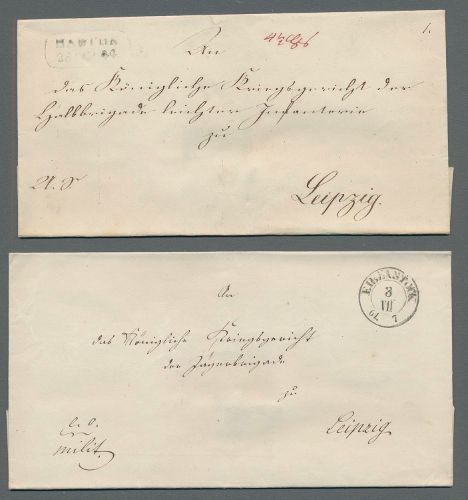 1.
An
das Königliche Kriegsgericht der
Halbbrigade leichter Infanterie
zu
Leipzig.
EIBENSTOCK
3
VII
61 7
An
das Königliche Kriegsgericht
der Jägerbrigade
zu
Leipzig
milit.